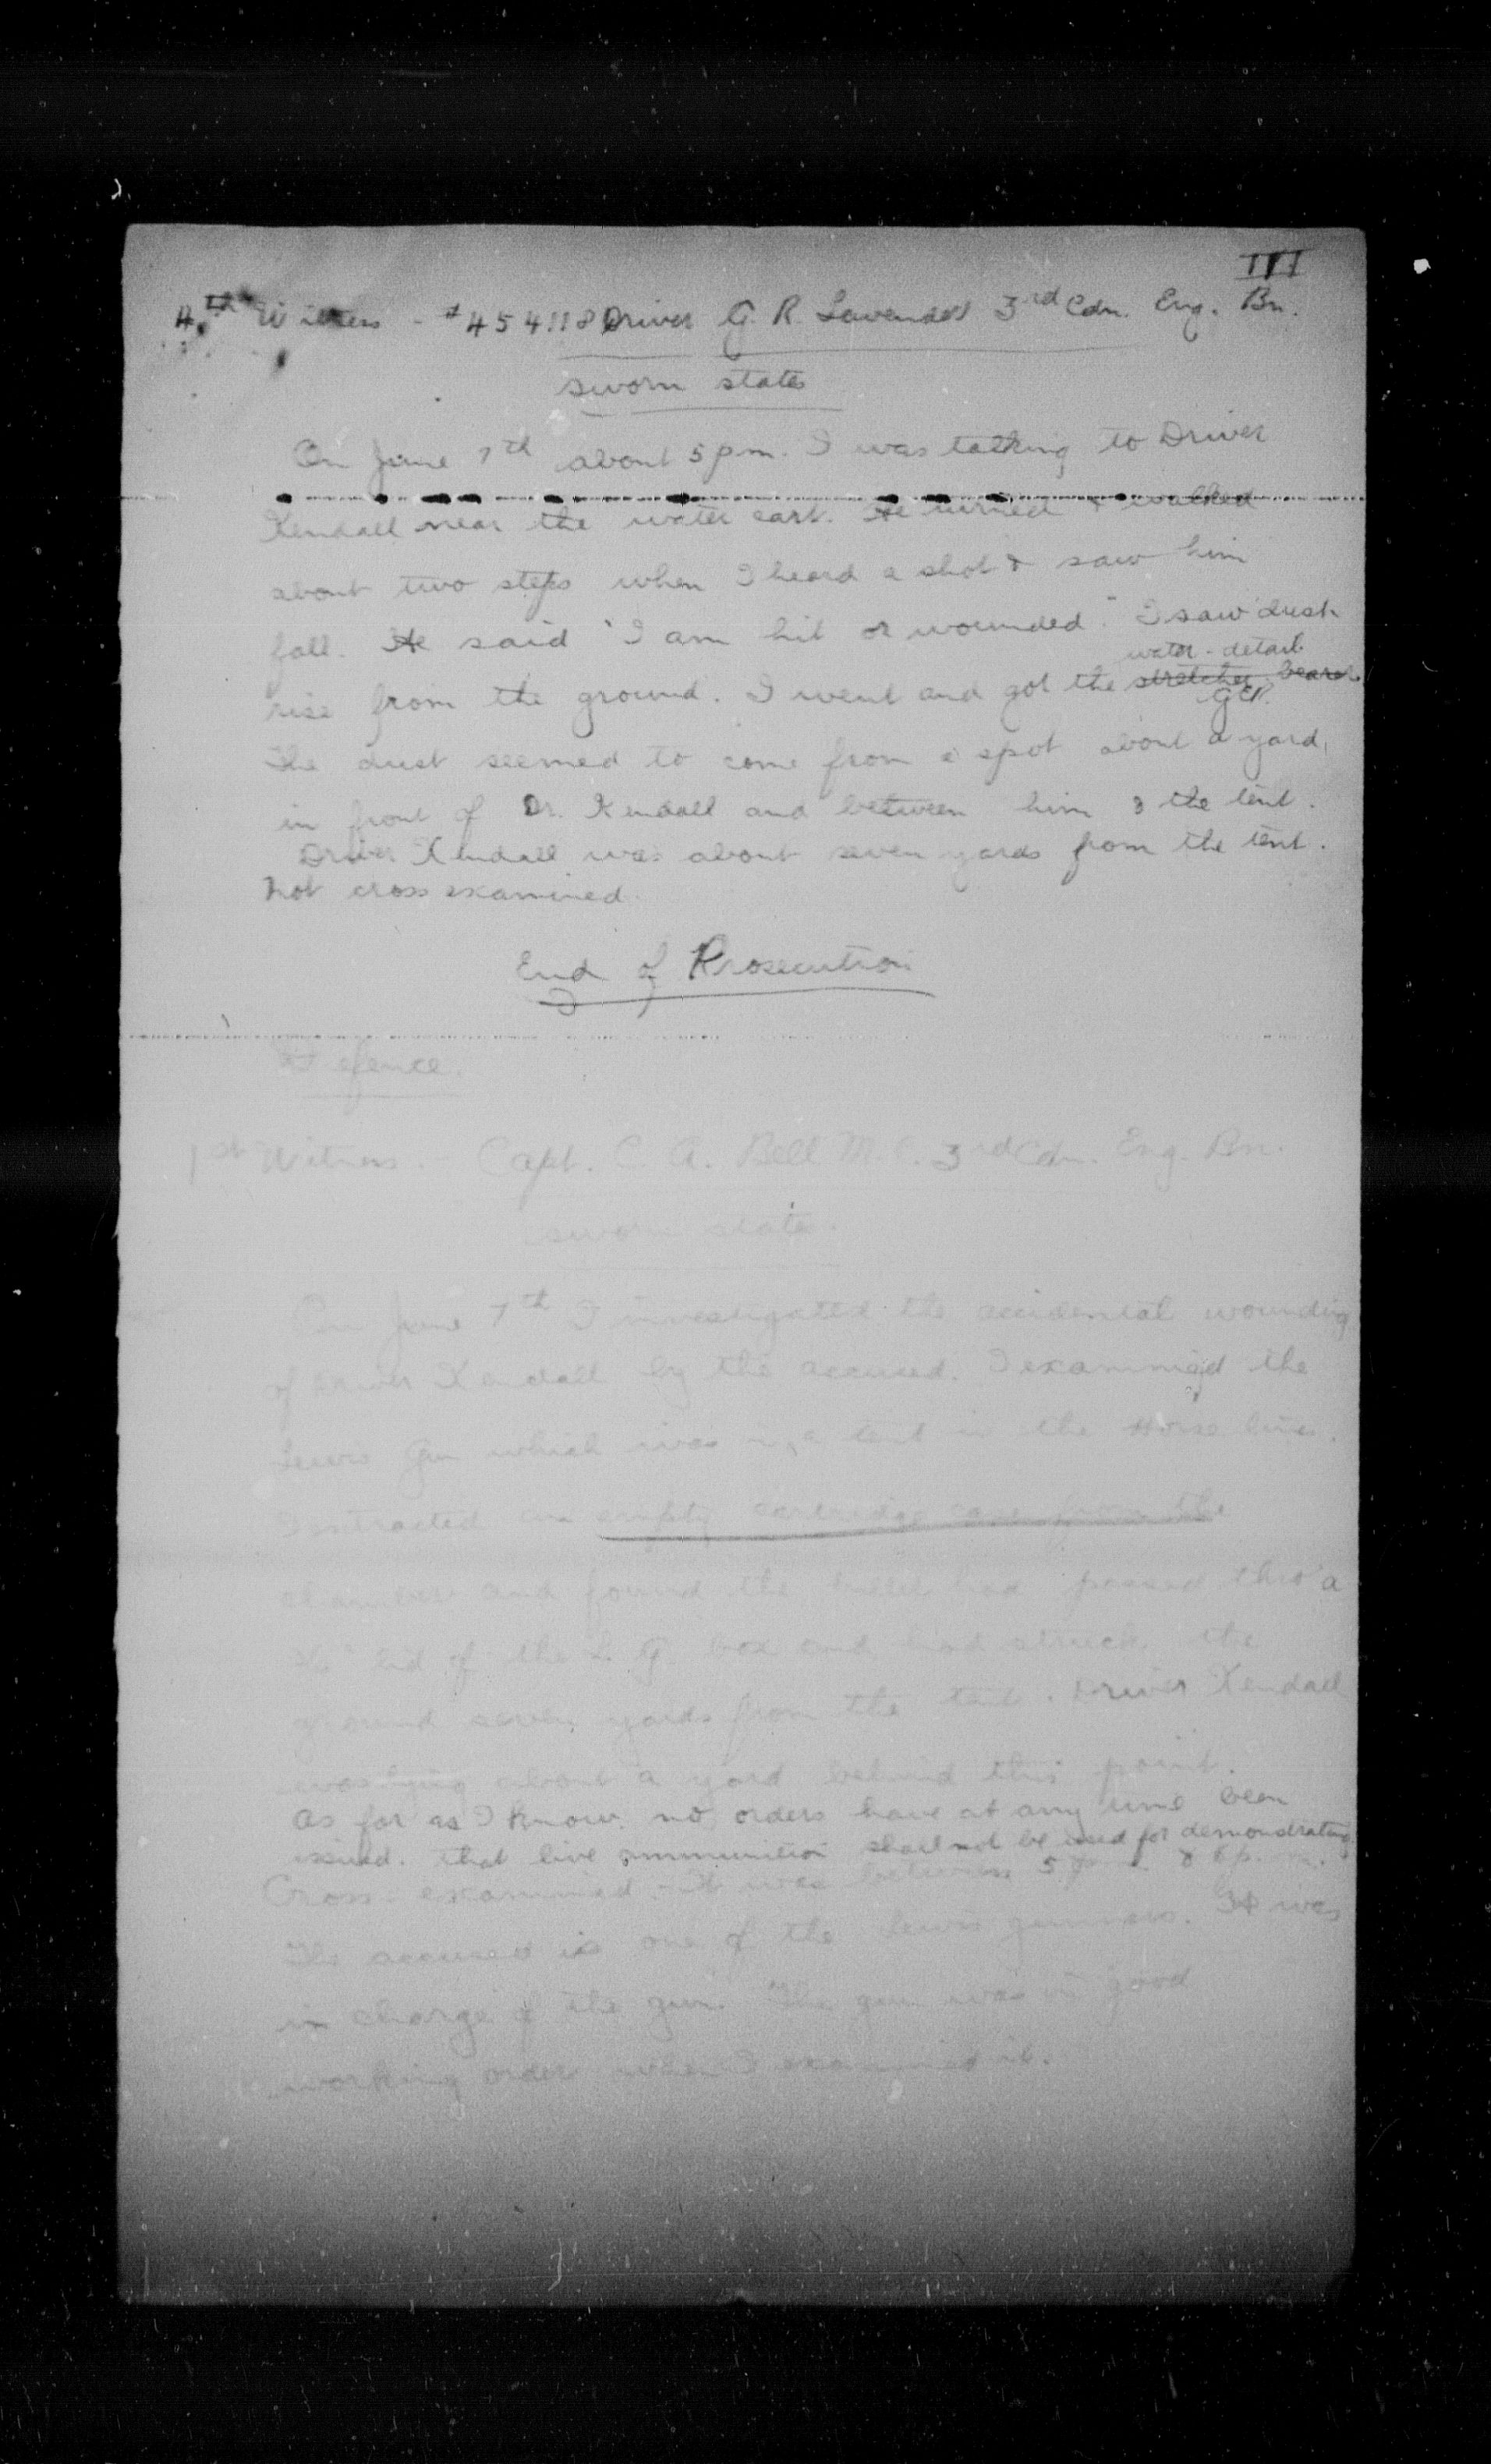 III
4th Witness - #454118 Driver G. R. Lavender 3rd Cdn. Eng. Bn.
sworn states
On June 7th about 5 pm. I was talking to Driver
Kendall near the water cart. He turned & walked
about two steps when I heard a shot & saw him
fall. He said "I am hit or wounded." I saw dust
water-detail.
rise from the ground. I went and got the stretcher bearer.
The dust seemed to come from a spot about a yard
in front of Dr. Kendall and between him & the tent.
Driver Kendall was about seven yards from the tent.
Not cross examined.
End of Prosecution
Defence.
1st Witness. - Capt. C. A. Bell M.C. 3rd Cdn. Eng. Bn.
sworn state.
On June 7th I investigated the accidental wounding
of Driver Kendall by the accused. I examined the
Lewis Gun which was in a tent in the Horse lines.
I extracted an empty cartridge case from the
chamber and found the bullet had passed thro' a
lid of the L. G. box and had struck the
ground seven yards from the tent. Driver Kendall
was lying about a yard behind this point.
As far as I know no orders have at any time been
issued that live ammunition shall not be used for demonstrating
Cross-examined. - It was between 5 pm. & 6 p.m.
The accused is one of the Lewis gunners. He was
in charge of the gun. The gun was in good
working order when I examined it.